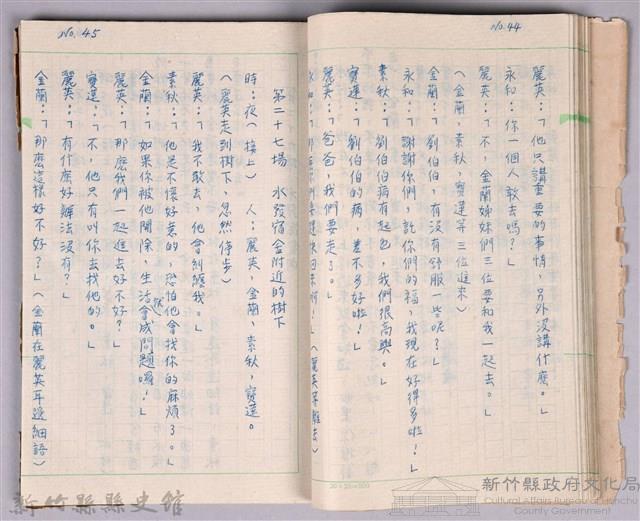 No. 44
麗英：「他只講重要的事情，另外沒講什麼。」
永和：「你一個人敢去嗎？」
麗英：「不，金蘭姊妹們三位要和我一起去。」
（金蘭，素秋，寶蓮等三位進來）
金蘭：「劉伯伯，有沒有舒服一些呢？」
永和：「謝謝你們，託你們的福，我現在好得多啦！」
素秋：「劉伯伯病有起色，我們很高興。」
寶蓮：「劉伯伯的病，差不多好啦！」
麗英：「爸爸，我們要走了。」
永和：「
No. 45
第二十七場　水發宿舍附近的樹下
時：夜（接上）　人：麗英，金蘭，素秋，寶蓮。
（麗英走到樹下，忽然停步）
麗英：「我不敢去，他會糾纏我。」
素秋：「他是不懷好意的，恐怕他會找你的麻煩了。」
金蘭：「如果你被他開除，生活會成問題囉！」
麗英：「那麼我們一起進去好不好？」
寶蓮：「不，他只有叫你去找他的。」
麗英：「有什麼好辦法沒有？」
金蘭：「那麼這樣好不好？」（金蘭在麗英耳邊細語）
20×25=500
新竹縣縣史館
新竹縣政府文化局
Cultural Affairs Bureau of Hsinchu County Government